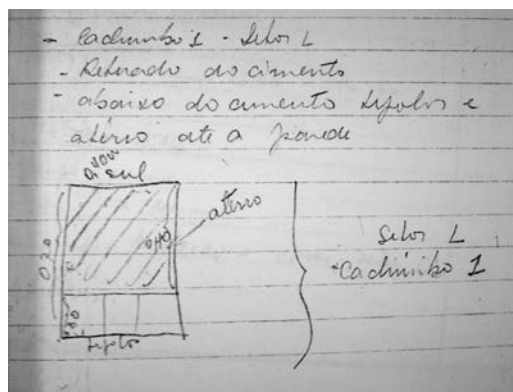 - Cachimbo 1 - Setor L
- Retirado do cimento
- abaixo do cimento tijolos e
atério até a parede
sul
aterro
0,40
0,20
tijolos
Setor L
Cachimbo 1